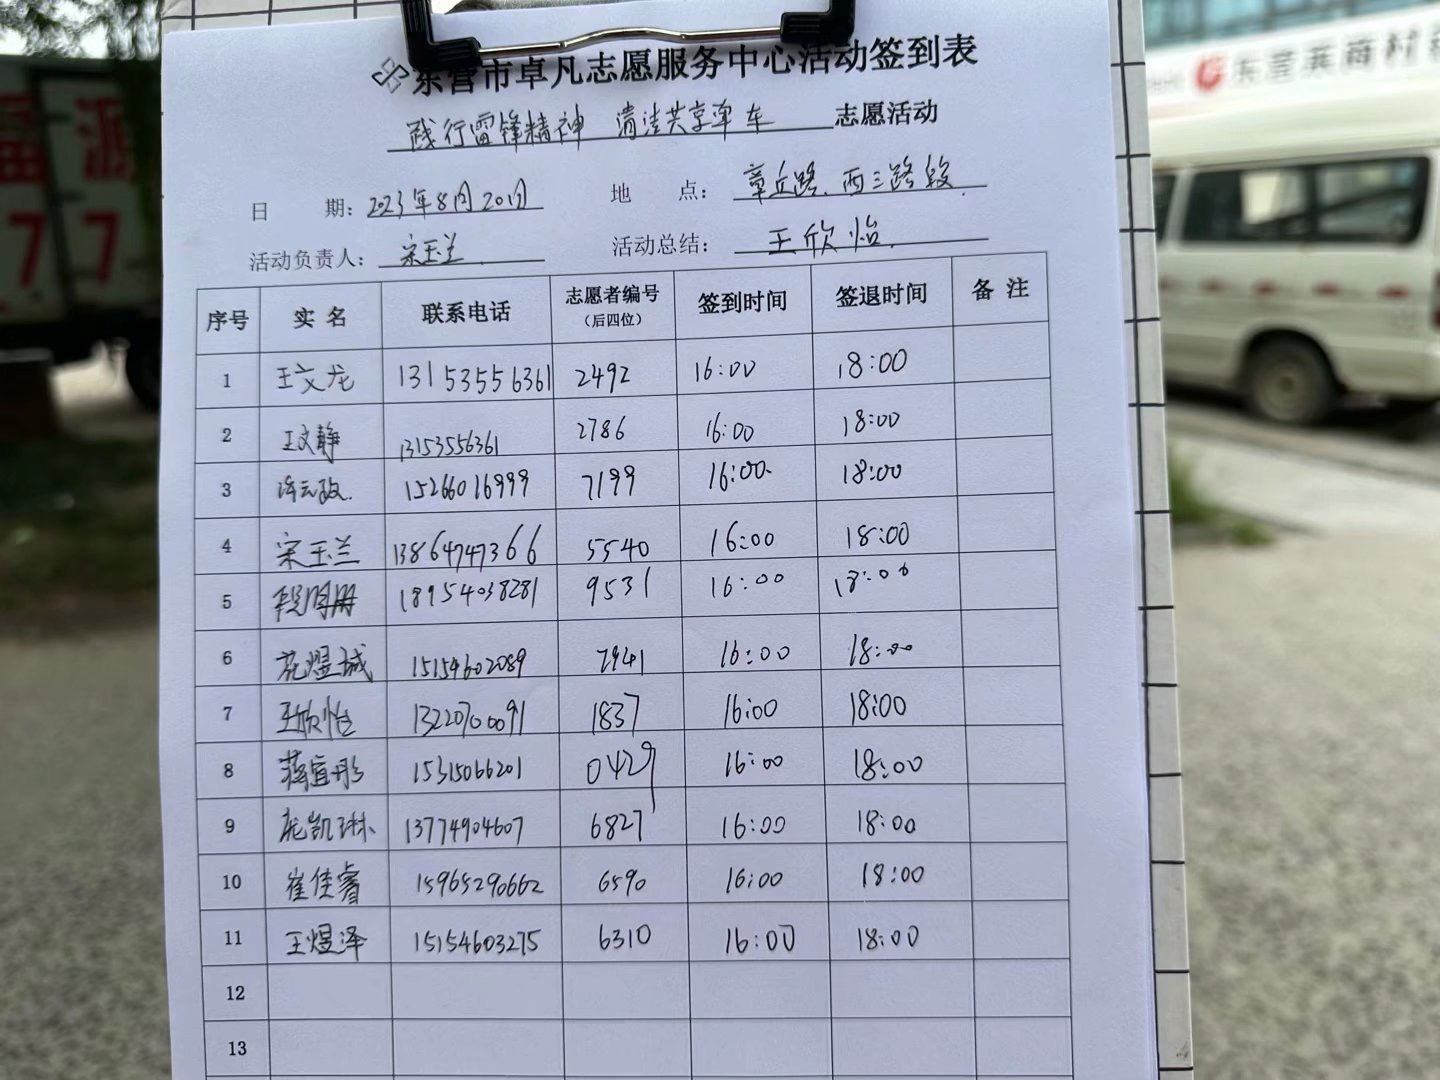 东营市卓凡志愿服务中心活动签到表
践行雷锋精神 清洁共享单车 志愿活动
日 期：2023年8月20日 地 点：章丘路、西三路段
活动负责人：宋玉兰 活动总结：王欣怡
序号 实名 联系电话 志愿者编号（后四位） 签到时间 签退时间 备注
1 王文龙 13153556361 2492 16:00 18:00
2 王文静 13153556361 2786 16:00 18:00
3 15266016999 7199 16:00 18:00
4 宋玉兰 13864747366 5540 16:00 18:00
5 18954038281 9531 16:00 18:00
6 15154602089 7941 16:00 18:00
7 王欣怡 13220700091 1837 16:00 18:00
8 蒋宜彤 15315066201 0429 16:00 18:00
9 庞凯琳 13774904607 6827 16:00 18:00
10 崔佳睿 15965290662 6590 16:00 18:00
11 王煜泽 15154603275 6310 16:00 18:00
12
13
福源
77
东营东商村